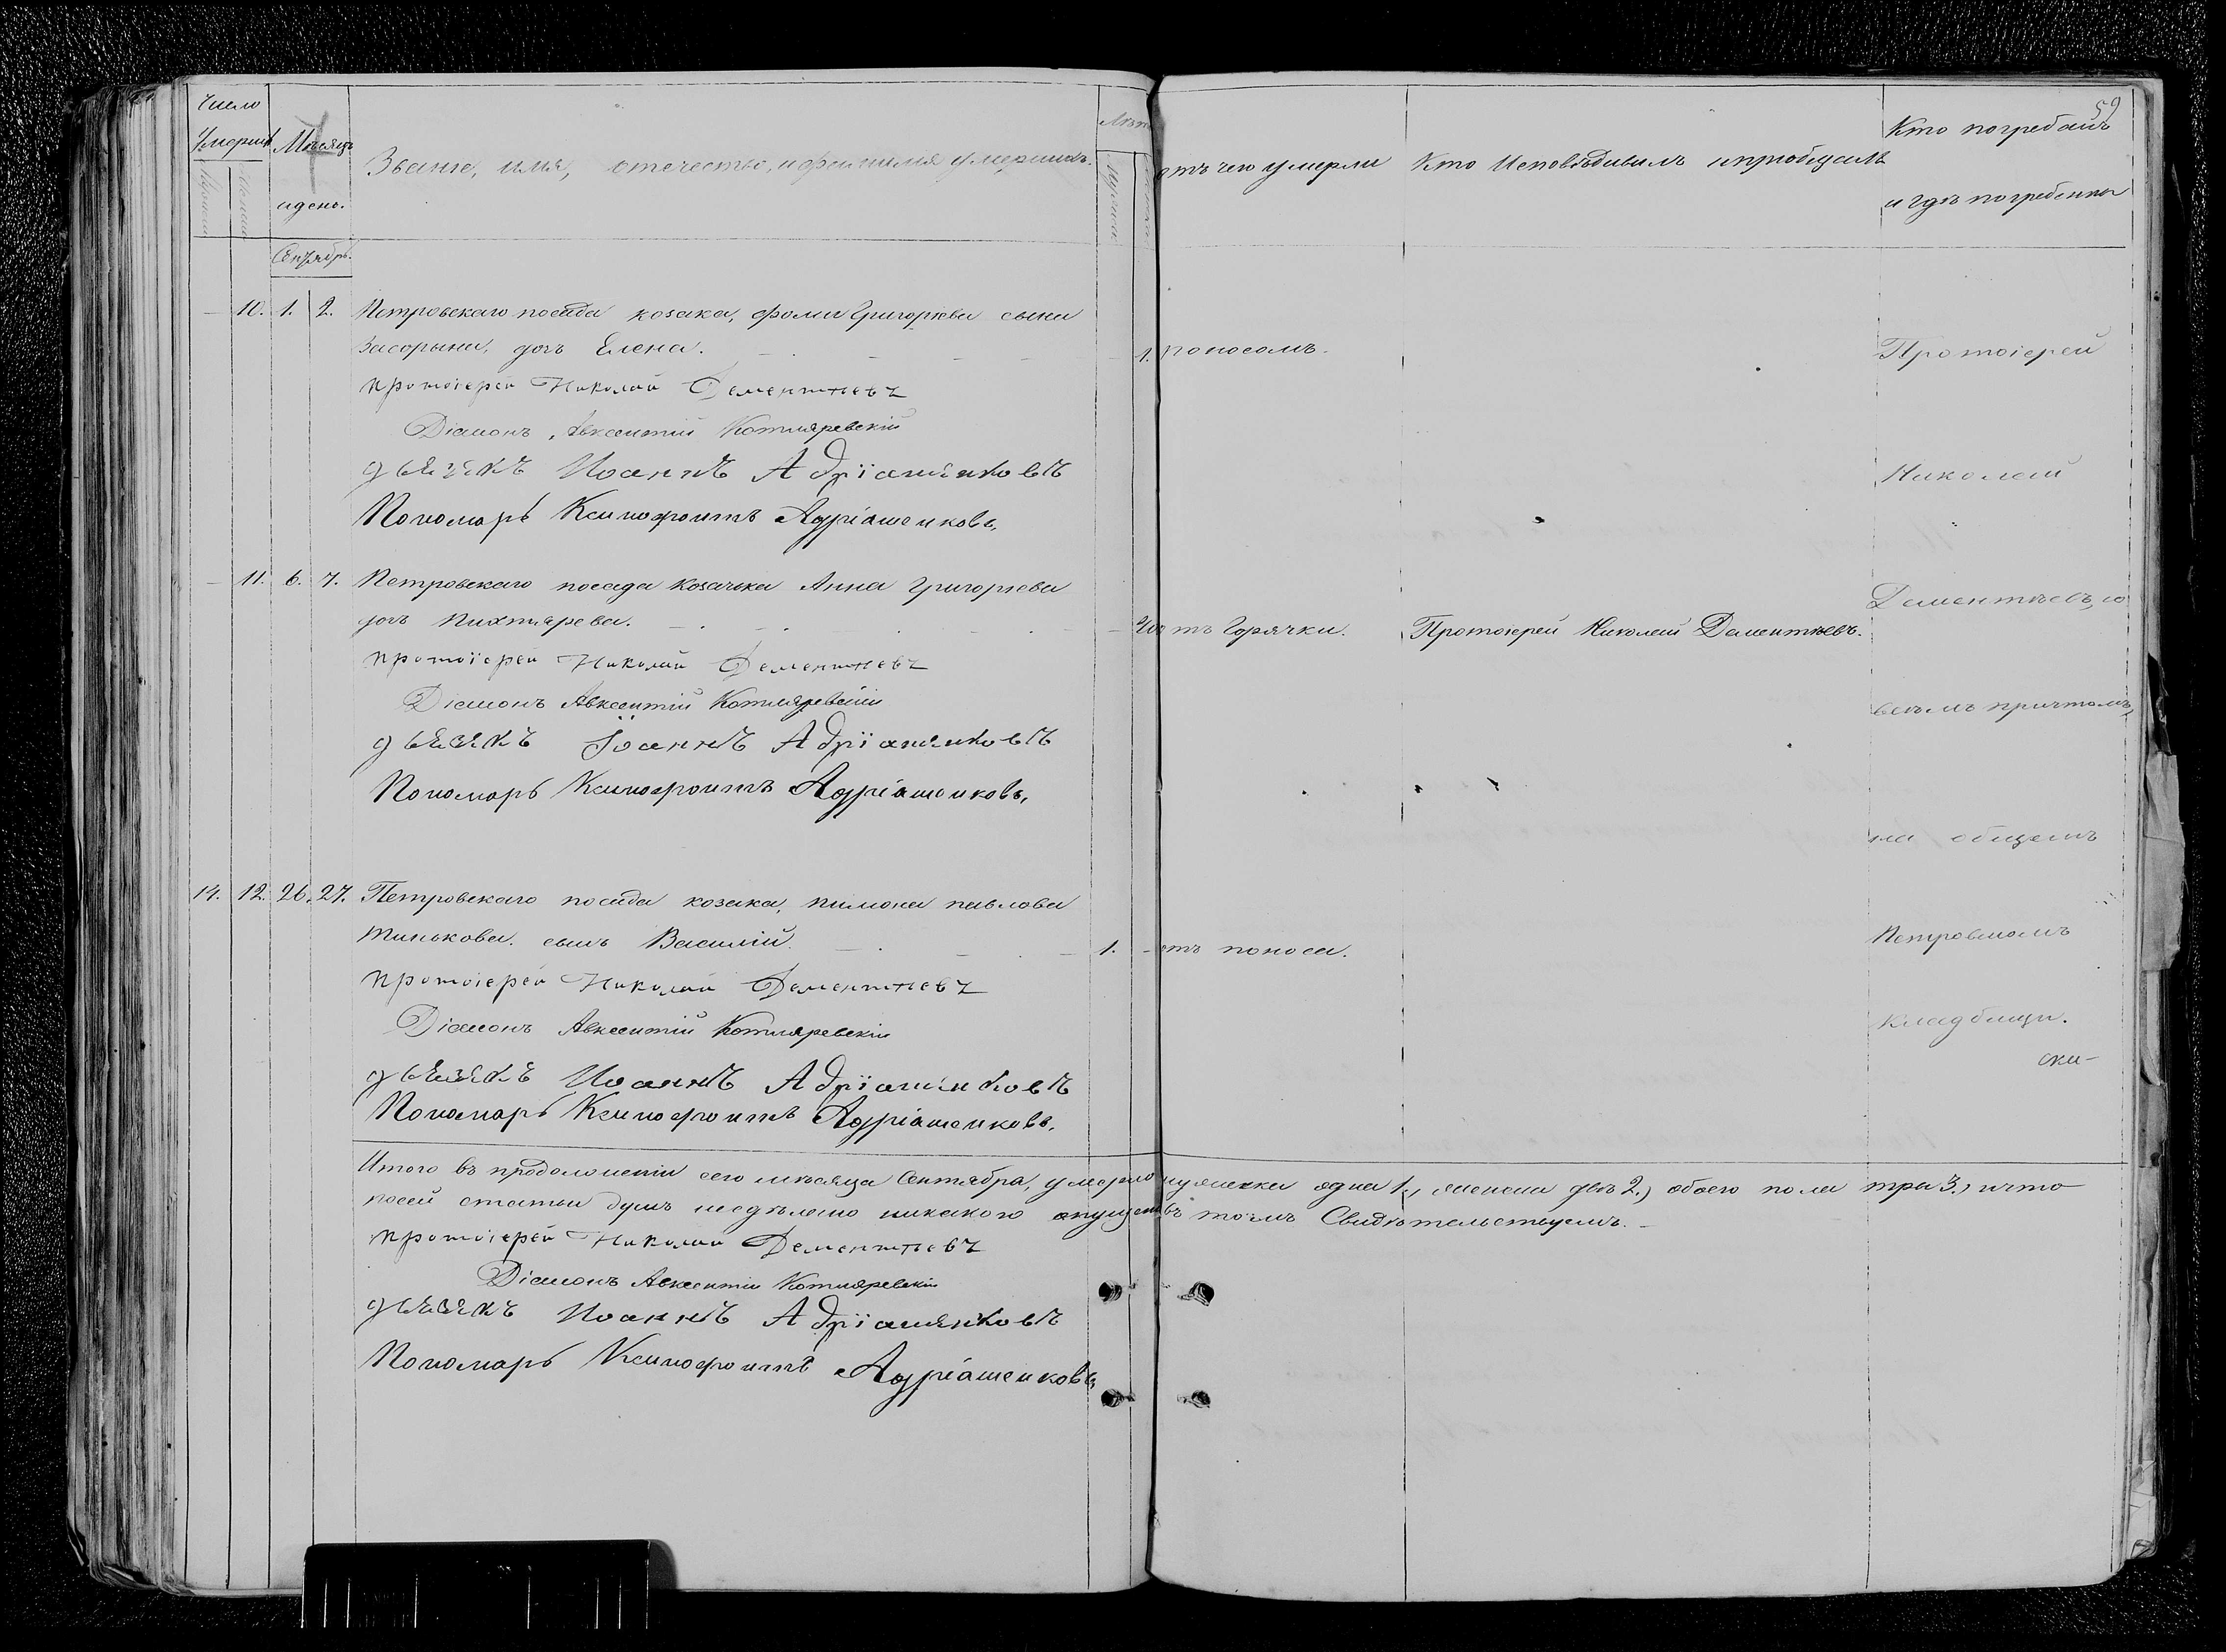 59
Число
Умершихъ
Мѣсяцъ
и день.
Званіе, имя, отечество, и фамилія умершихъ.
Лѣта
отъ чего умерли
Кто Исповѣдывалъ и пріобщалъ
Кто погребалъ
и гдѣ погребенны
Сентябрь.
10. 1. 2. Петровскаго посада козака, фомы Григорьева сына
Засорына, дочь Елена. 1. поносомъ.
Протоіерей Николай Дементьевъ
Діаконъ Авксентій Котляревскій
дьячокъ Иоаннъ Адріашенковъ
Пономарь Ксинофонтъ Адріашенковъ,
11. 6. 7. Петровскаго посада козачка Анна Григорьева
дочь Пихтярева. отъ Горячки. Протоіерей Николай Дементьевъ.
Протоіерей Николай Дементьевъ
Діаконъ Авксентій Котляревскій
дьячокъ Іоаннъ Адріашенковъ
Пономарь Ксинофонтъ Адріашенковъ,
14. 12. 26. 27. Петровскаго посада козака, пимона павлова
Тинькова. сынъ Василій. 1. отъ поноса.
Протоіерей Николай Дементьевъ
Діаконъ Авксентій Котляревскій
дьячокъ Иоаннъ Адріашенковъ
Пономарь Ксинофонтъ Адріашенковъ,
Протоіерей
Николай
Дементьевъ, со
всѣмъ причтомъ,
на общемъ
Петровскомъ
кладбищи.
Итого въ продолженіи сего мѣсяца Сентября, умерло мужеска одна 1., женска двѣ 2., обоего пола три 3., и что
посей статьи душъ несдѣлано никакого опущен въ томъ Свидѣтельствуемъ.
Протоіерей Николай Дементьевъ
Діаконъ Авксентій Котляревскій
дьячокъ Иоаннъ Адріашенковъ
Пономарь Ксинофонтъ Адріашенковъ,